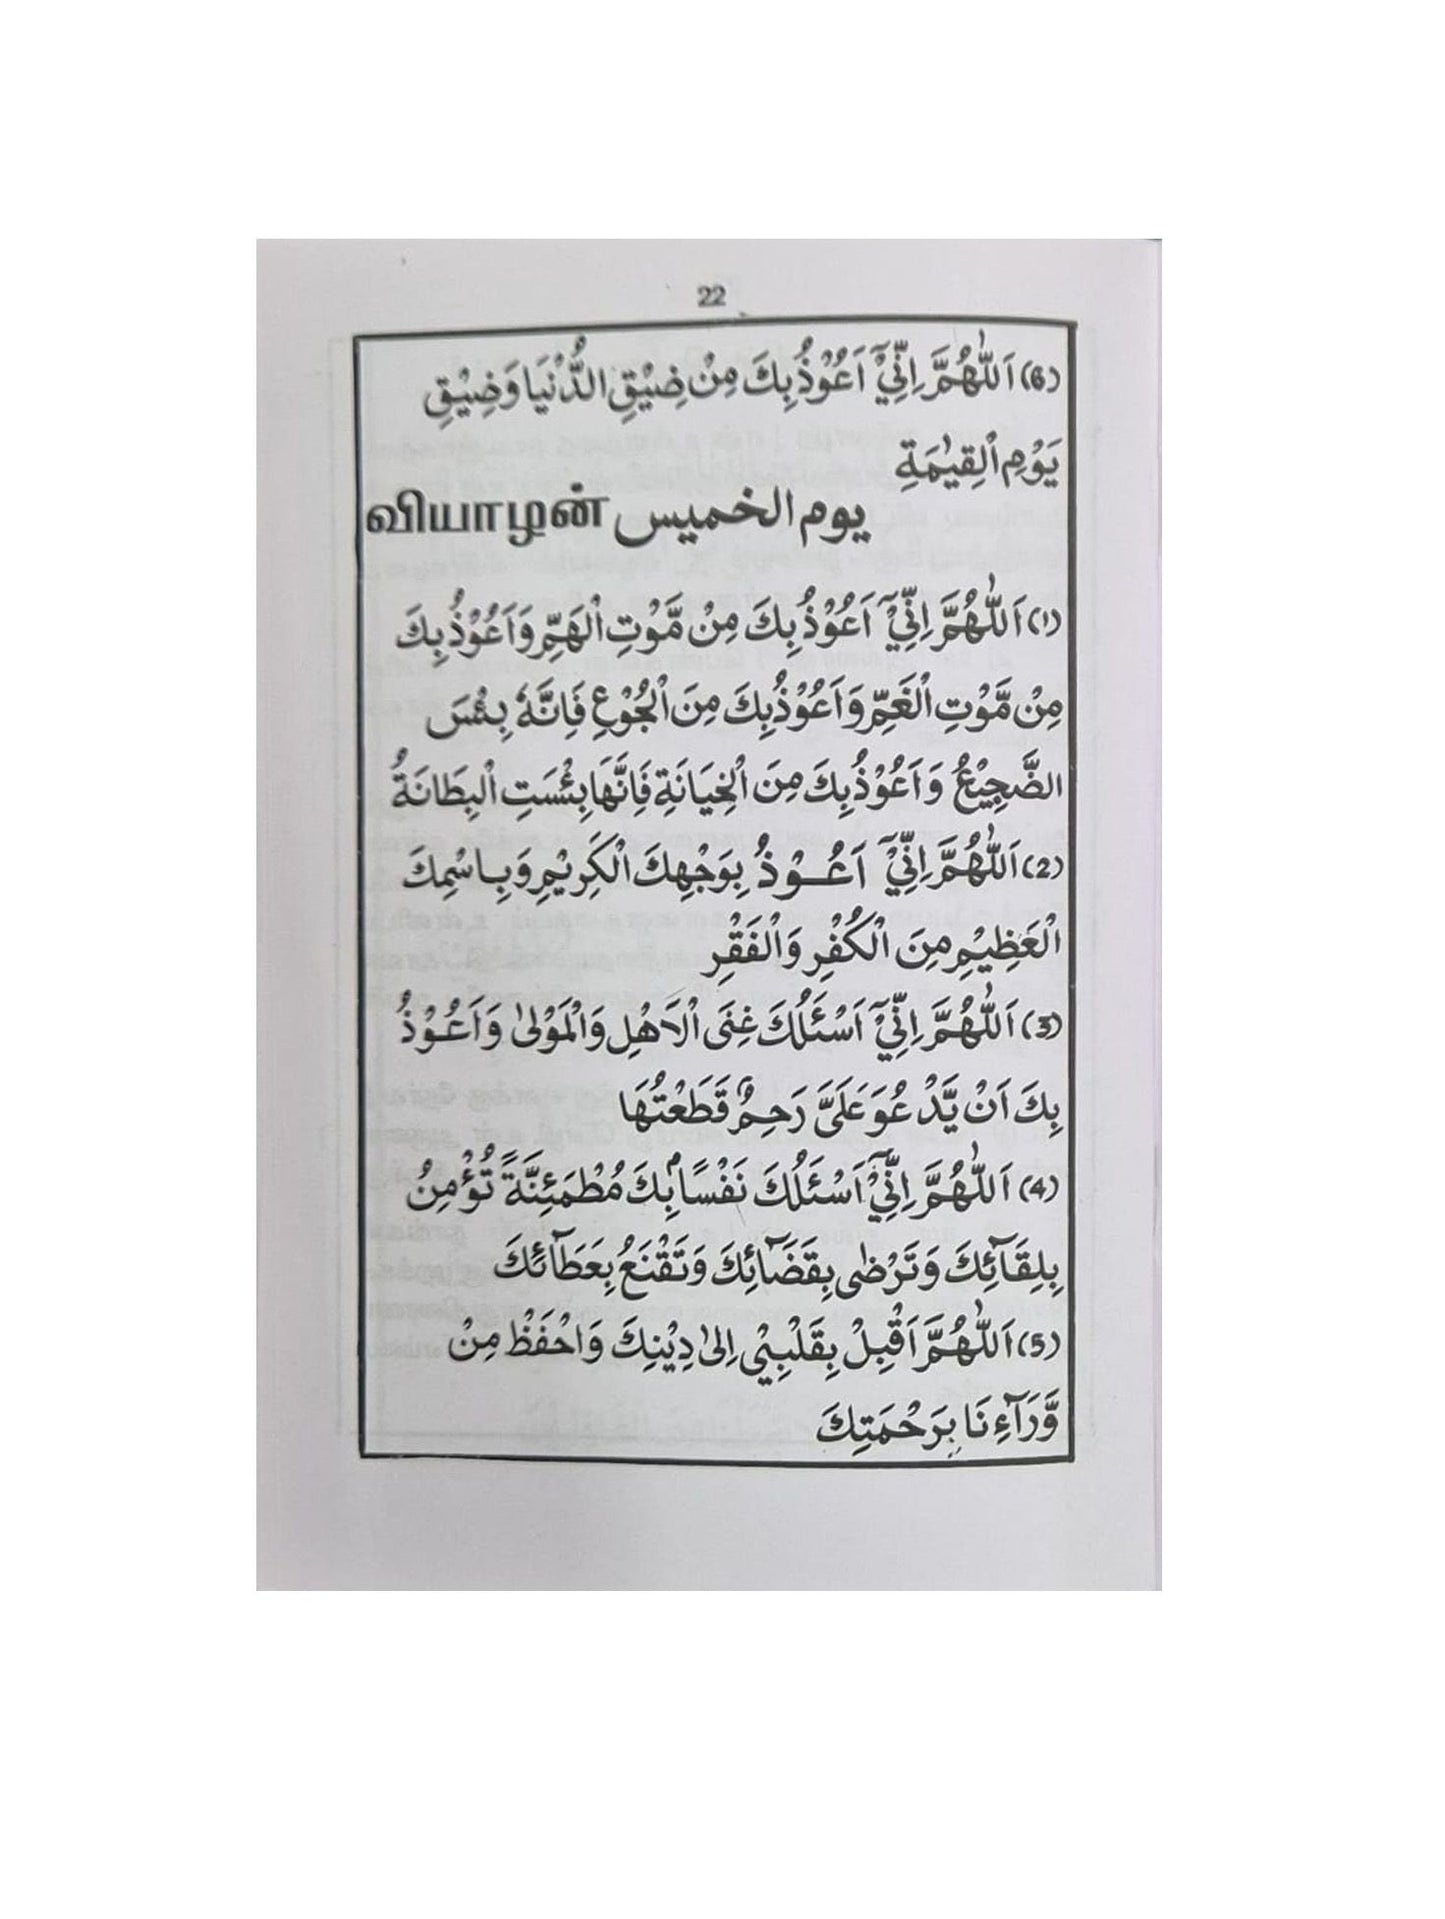 22
(6) اَللّٰهُمَّ اِنِّيْٓ اَعُوْذُ بِكَ مِنْ ضِيْقِ الدُّنْيَا وَضِيْقِ
يَوْمِ الْقِيٰمَةِ
يوم الخميس வியாழன்
(1) اَللّٰهُمَّ اِنِّيْٓ اَعُوْذُ بِكَ مِنْ مَّوْتِ الْهَمِّ وَاَعُوْذُ بِكَ
مِنْ مَّوْتِ الْغَمِّ وَاَعُوْذُ بِكَ مِنَ الْجُوْعِ فَاِنَّهٗ بِئْسَ
الضَّجِيْعُ وَاَعُوْذُ بِكَ مِنَ الْخِيَانَةِ فَاِنَّهَا بِئْسَتِ الْبِطَانَةُ
(2) اَللّٰهُمَّ اِنِّيْٓ اَعُـوْذُ بِوَجْهِكَ الْكَرِيْمِ وَبِـاسْمِكَ
الْعَظِيْمِ مِنَ الْكُفْرِ وَالْفَقْرِ
(3) اَللّٰهُمَّ اِنِّيْٓ اَسْئَلُكَ غِنَى الْاَهْلِ وَالْمَوْلٰى وَاَعُوْذُ
بِكَ اَنْ يَّدْعُوَ عَلَىَّ رَحِمٌۢ قَطَعْتُهَا
(4) اَللّٰهُمَّ اِنِّيْٓ اَسْئَلُكَ نَفْسًاۢ بِكَ مُطْمَئِنَّةً تُؤْمِنُ
بِلِقَآئِكَ وَتَرْضٰى بِقَضَآئِكَ وَتَقْنَعُ بِعَطَآئِكَ
(5) اَللّٰهُمَّ اَقْبِلْ بِقَلْبِيْ اِلٰى دِيْنِكَ وَاحْفَظْ مِنْ
وَّرَآءِنَا بِرَحْمَتِكَ